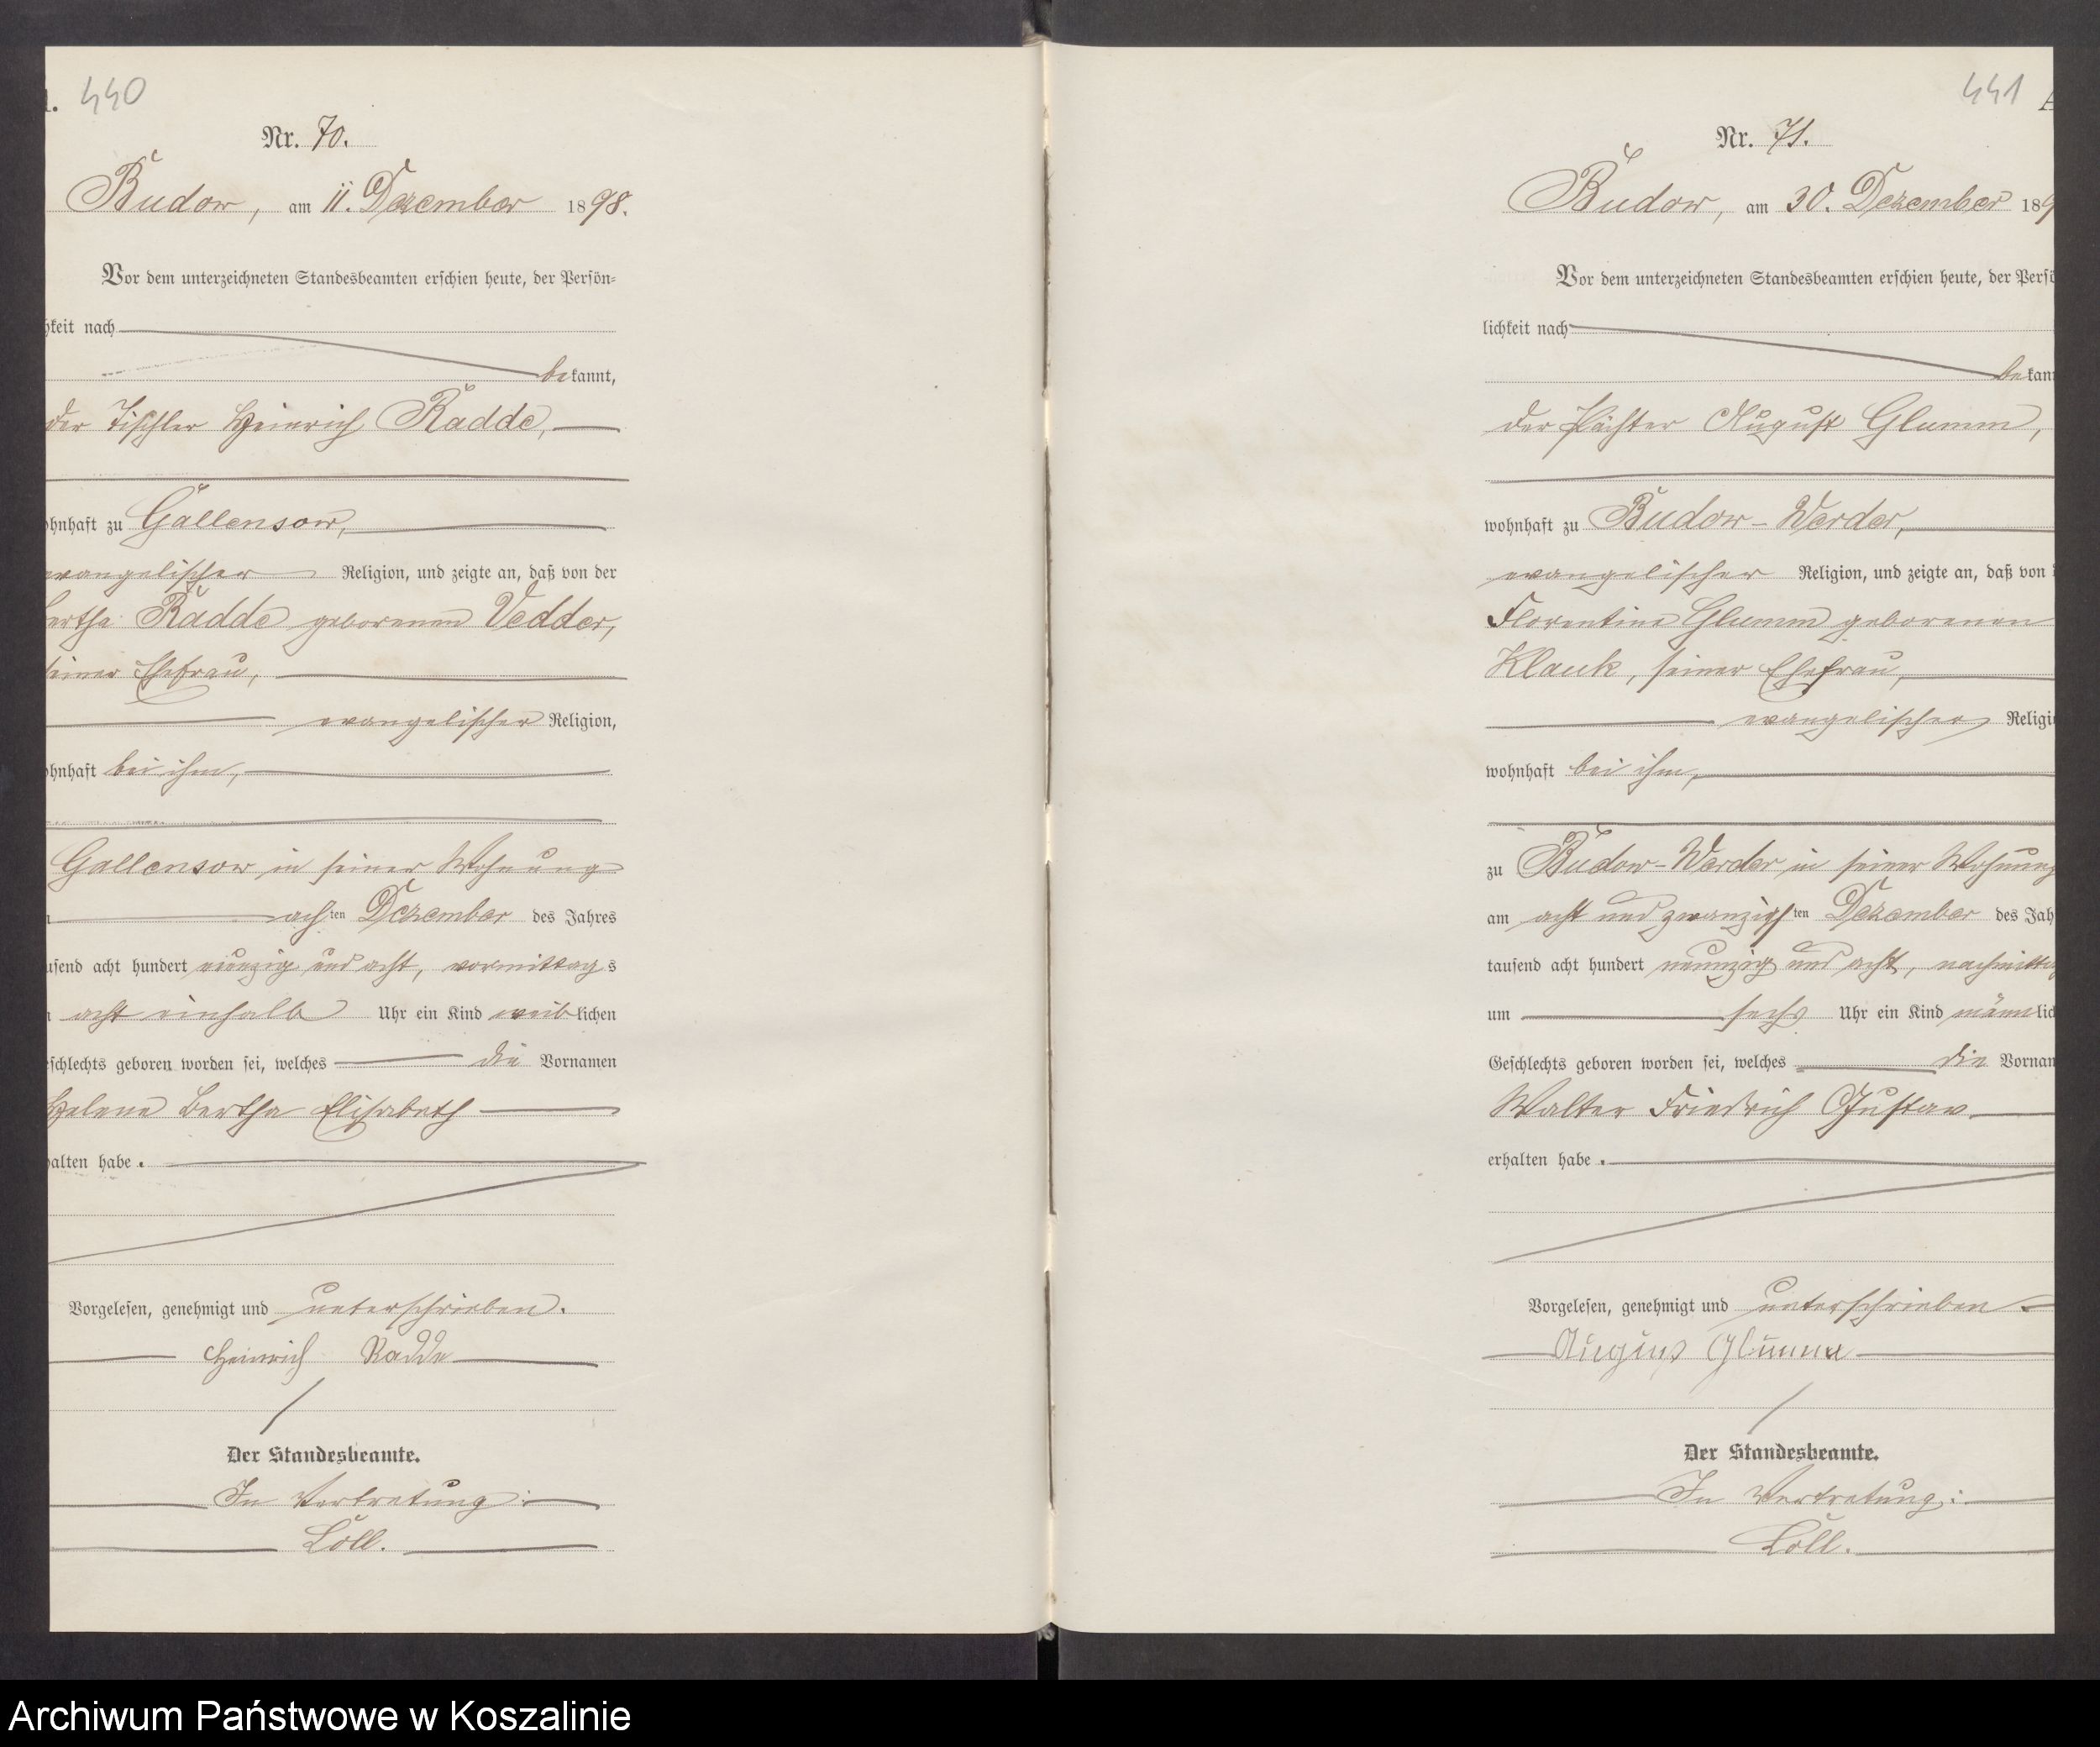 440
Nr. 70.
Budow, am 11. Dezember 1898.
Vor dem unterzeichneten Standesbeamten erschien heute, der Persön-
hkeit nach
bekannt,
der Tischler Heinrich Radde,
ohnhaft zu Gallensow,
evangelischer Religion, und zeigte an, daß von der
ertha Radde geborenen Vedder,
seiner Ehefrau,
evangelischer Religion,
ohnhaft bei ihm,
Gallensow in seiner Wohnung
achten Dezember des Jahres
usend acht hundert neunzig und acht, vormittags
acht einhalb Uhr ein Kind weiblichen
schlechts geboren worden sei, welches die Vornamen
Helene Bertha Elisabeth
halten habe.
Vorgelesen, genehmigt und unterschrieben.
Heinrich Radde
Der Standesbeamte.
In Vertretung:
Löll.
441
Nr. 71.
Budow, am 30. Dezember 189
Vor dem unterzeichneten Standesbeamten erschien heute, der Persö
lichkeit nach
bekan
der Pächter August Glumm,
wohnhaft zu Budow-Werder,
evangelischer Religion, und zeigte an, daß von
Florentine Glumm geborenen
Klauk, seiner Ehefrau,
evangelischer Religi
wohnhaft bei ihm,
zu Budow-Werder in seiner Wohnung
am acht und zwanzigsten Dezember des Jah
tausend acht hundert neunzig und acht, nachmitta
um sechs Uhr ein Kind männlic
Geschlechts geboren worden sei, welches die Vornam
Walter Friedrich Gustav
erhalten habe.
Vorgelesen, genehmigt und unterschrieben
Glumm
Der Standesbeamte.
In Vertretung:
Löll.
Archiwum Państwowe w Koszalinie